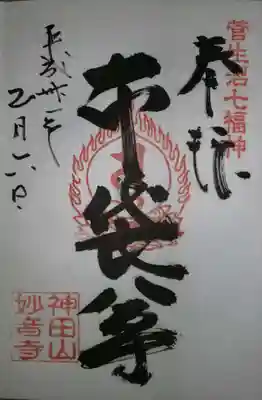 菅生沼七福神
奉拝
布袋尊
平成卅一年
乙月六日
神田山
妙音寺